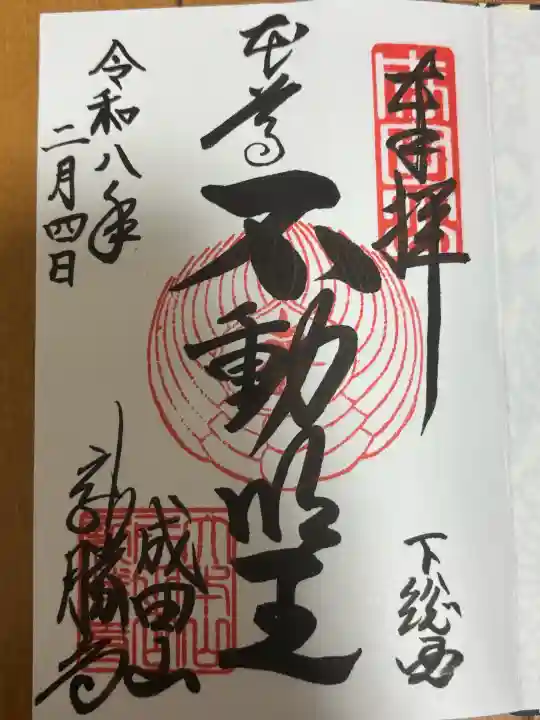 奉拝
下総国
本尊
不動明王
成田山
新勝寺
令和八年
二月四日